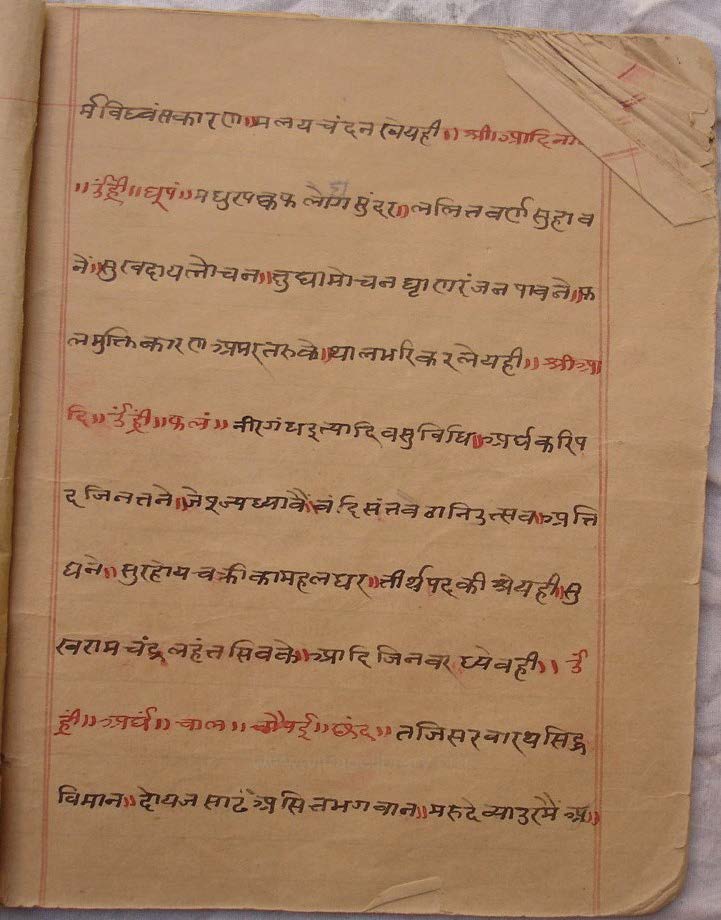 र्मविध्वंसकारण॥मलयचंदनखेयही॥श्रीआदिना
॥उंह्रीं॥धूपं॥मधुरपक्कफलोगसुंदर॥ललितवर्णसुहाव
नें॥सुखदायलोचन॥छुधामोचनघ्राणरंजनपावने॥फ
लमुक्तिकारणअमरतरुके॥थालभरिकरलेयही॥श्रीआ
दि॥उंह्रीं॥फलं॥नीरगंधइत्यादिवसुविधि॥अर्घकरिप
दजिनतने॥जेपूज्यध्यावैंवंदिसंतवेठानिउत्सव॥अत्ति
घने॥सुरहोयचक्रीकामहलधर॥तीर्थपदकीश्रेयही॥सु
खरामचंद्रलहंतसिवके॥आदिजिनवरध्येवही॥उं
ह्रीं॥अर्घं॥चाल॥चौपई॥छंद॥तजिसरवारथसिद्ध
विमान॥दोयजसाढंअसितभगवान॥मरुदेव्याउरमैंअ॥